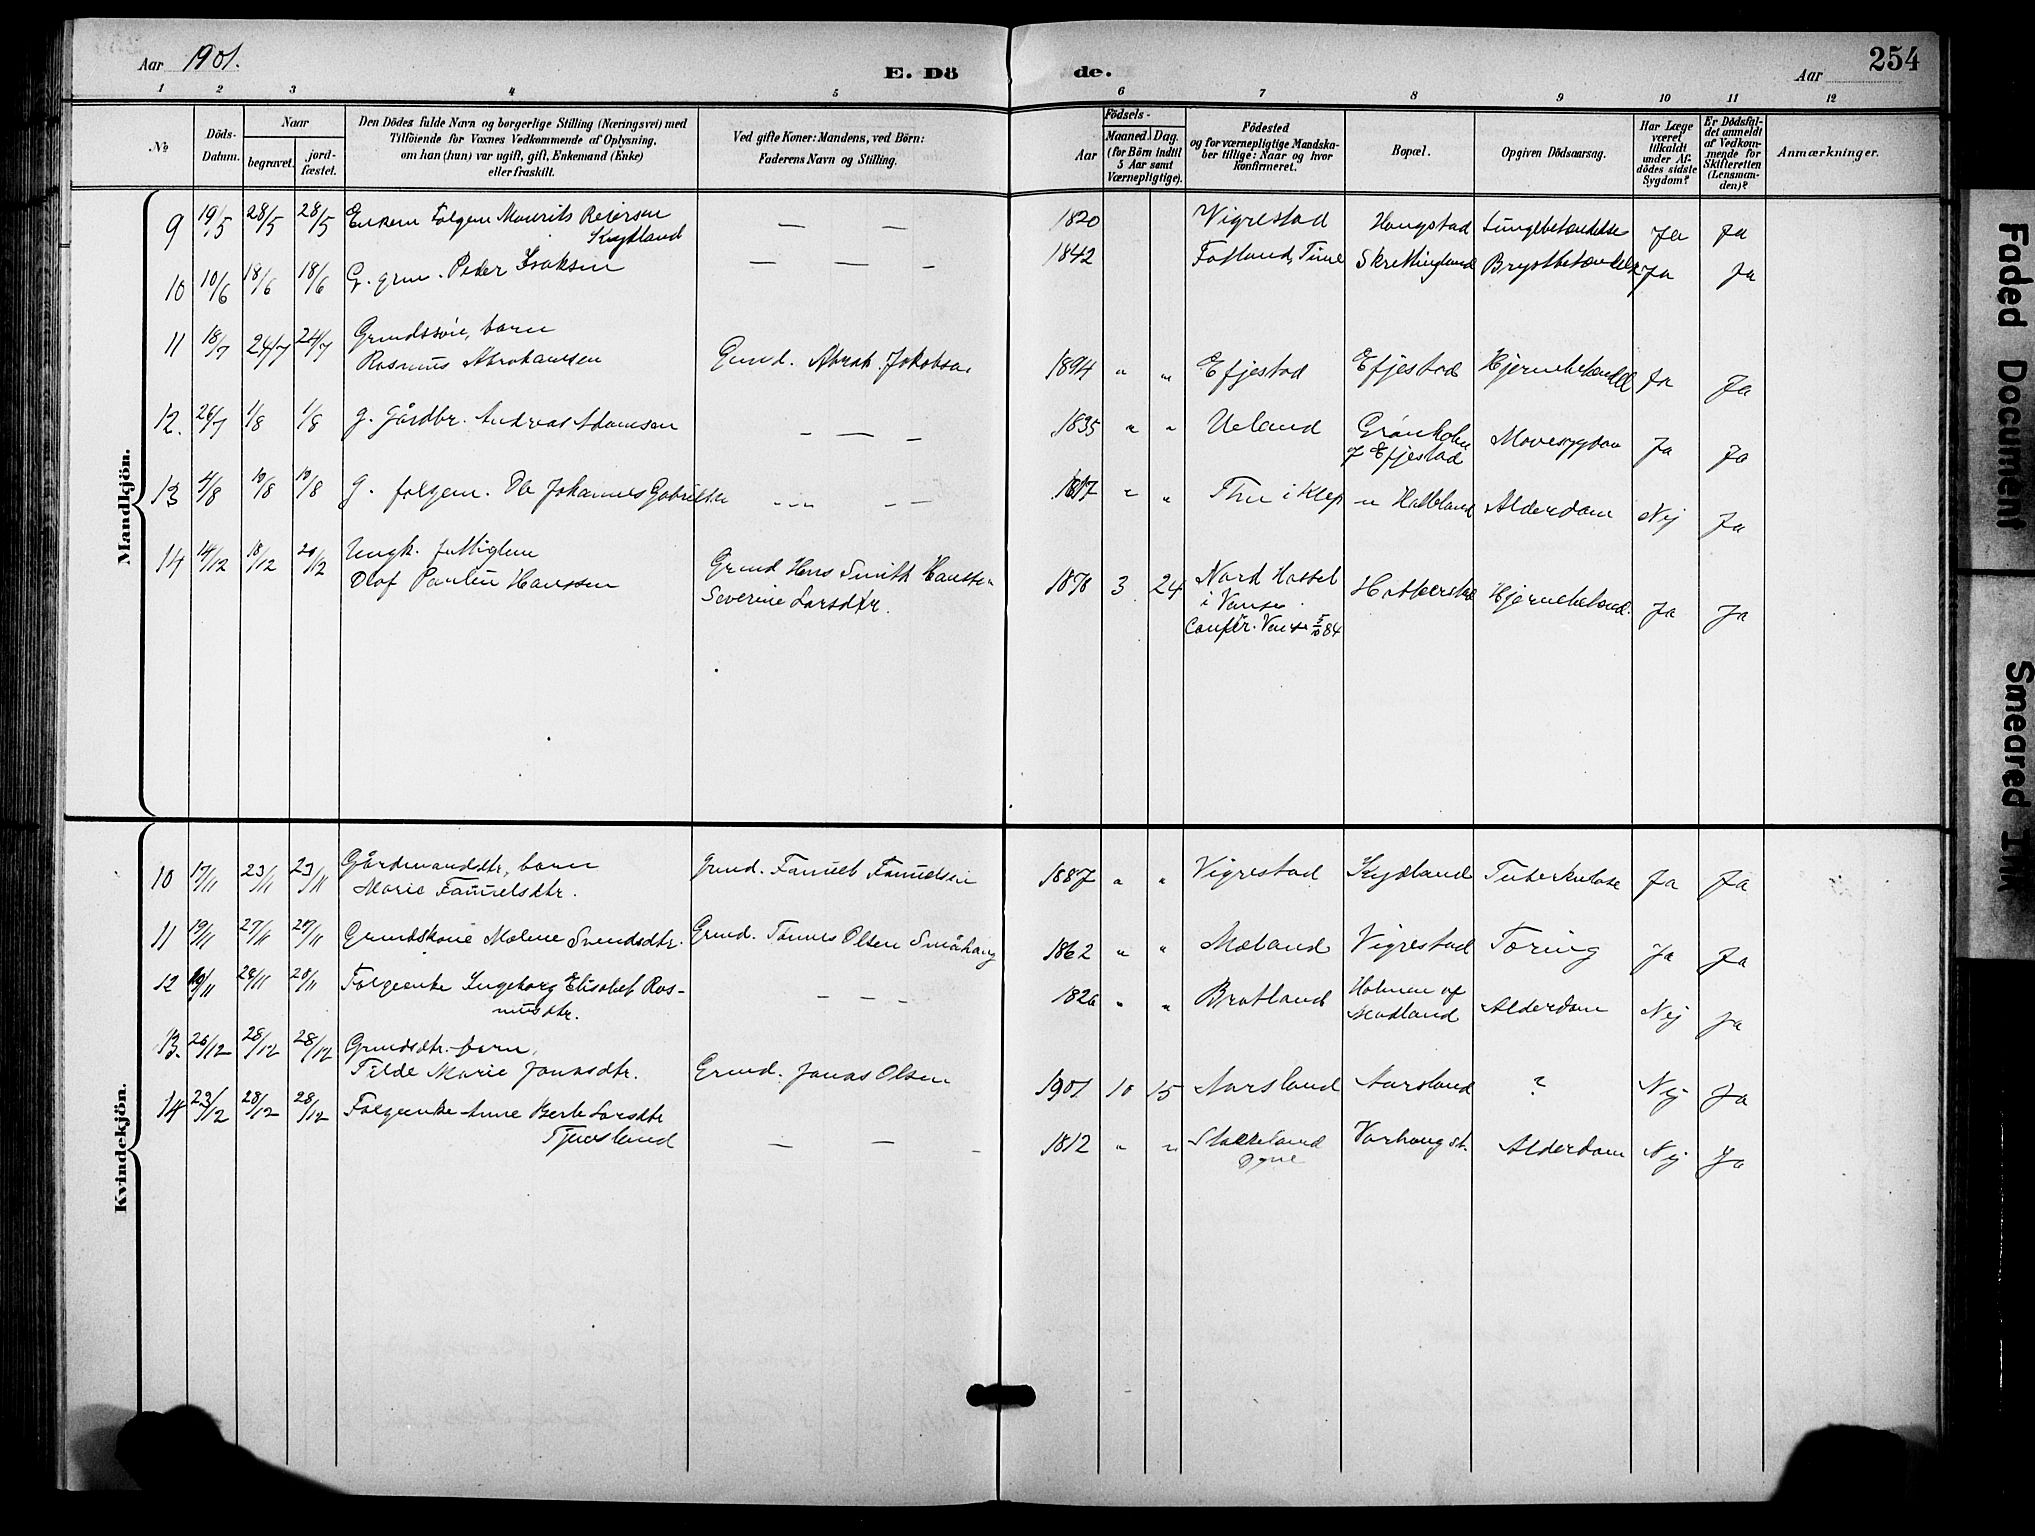 Aar 1901.
E. Dö
de.
Aar
254
1 2 3 4 5 6 7 8 9 10 11 12
№
Döds-Datum.
Naar
begravet.
jord-fæstet.
Den Dödes fulde Navn og borgerlige Stilling (Næringsvei) med
Tilföiende for Voxnes Vedkommende af Oplysning,
om han (hun) var ugift, gift, Enkemand (Enke)
eller fraskilt.
Ved gifte Koner: Mandens, ved Börn:
Faderens Navn og Stilling.
Födsels-
Aar
Maaned.
Dag.
(for Börn indtil
5 Aar samt
Værnepligtige).
Födested
og for værnepligtige Mandska-
ber tillige: Naar og hvor
konfirmeret.
Bopæl.
Opgiven Dödsaarsag.
Har Læge
været
tilkaldt
under Af-
dödes sidste
Sygdom?
Er Dödsfal-
det anmeldt
af Vedkom-
mende for
Skifteretten
(Lensman-
den)?
Anmærkninger.
Mandkjön.
9 19/5 28/5 28/5 Enkem Folgem Mourits Reiersen — — 1820 Vigrestad Hougstad Lungebetændelse Ja Ja
Kydland
10 10/6 18/6 18/6 G. grm. Peder Isaksen — — – 1842 Fotland, Time Skrettingland Brystbetændelse Ja Ja
11 18/7 24/7 24/7 Grmdssøn, barn
Rasmus Abrahamsen Grmd. Abrah. Jakobsen 1894 " " Efjestad Efjestad Hjernebetændel Ja Ja
12. 26/7 1/8 1/8 g. Gårdbr. Andreas Adamsen – — – 1835 " " Ueland Grønholen
af Efjestad Mavesygdom Ja Ja
13 4/8 10/8 10/8 g. folgem. Ole Johannes Gabrielsen 1817 " " Thu i Klep Alderdom Nej Ja
14 14/12 18/12 20/12 Ungk.
Olaf Paulin Hanssen Grmd Hans Smith Hanssen 1878 3 24 Nord Hassel Hjernebetænd. Ja Ja
Severine Larsdtr. i Vanse.
Confir. Vanse 84
Kvindekjön.
10 17/11 23/11 23/11 Gårdmandsdtr, barn
Marie Samuelsdtr. Grmd. Samuel Samuelsen 1887 " " Vigrestad Kydland Tuberkulose Ja Ja
11 19/11 27/11 27/11 Grmdskone Malene Svendsdtr. Grmd. Tønnes Olsen Småhaug 1862 " " Mæland Vigrestad Tæring Ja Ja
12 28/11 28/11 Folgeenke Ingeborg Elisabet Ras-
musdtr. – – – 1826 " " Bratland Holmen af
Madland Alderdom Nej Ja
13. 26/12 28/12 28/12 Grmdsdtr. barn,
Tilde Marie Jonasdtr. Grmd. Jonas Olsen 1901 10 15 Aarsland Aarsland ? Nej Ja
14 23/12 28/12 28/12 Folgeenke Anne Berte Larsdtr
Tjensland — — - 1812 " " Stokkeland Varhougst. Alderdom Nej Ja
Ogne
Faded Document
Smeared Ink